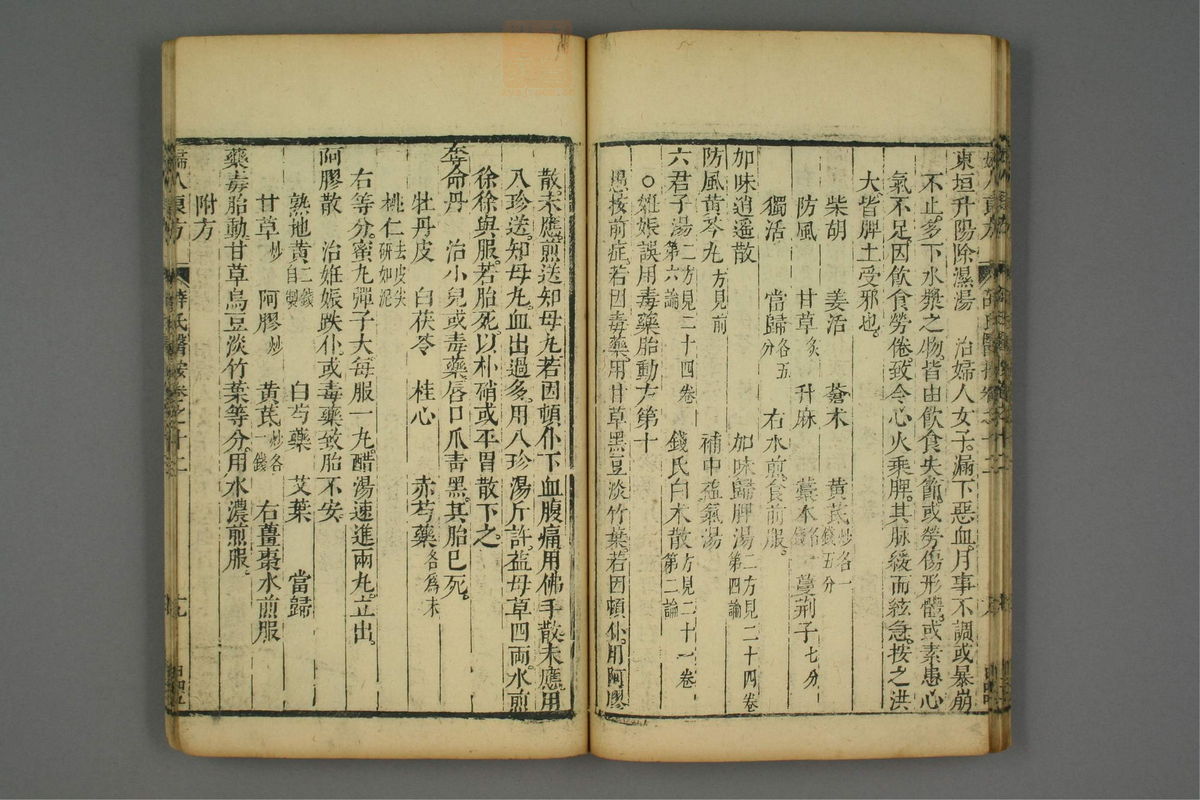 東垣升陽除濕湯　治婦人女子漏下惡血月事不調或暴崩
不止多下水漿之物皆由飲食失節或勞傷形體或素患心
氣不足因飲食勞倦致令心火乘脾其脉緩而絃急按之洪
大皆脾土受邪也
柴胡　羗活　蒼术　黃芪炒各一錢五分
防風　甘草炙　升麻　藁本各一錢　蔓荆子七分
獨活　當歸各五分　右水煎食前服
加味逍遥散　加味歸脾湯二方見二十四卷第四論
防風黃芩丸方見前　補中益氣湯
六君子湯二方見二十四卷第六論　錢氏白术散方見二十一卷第二論
○妊娠誤用毒藥胎動方第十
愚按前症若因毒藥用甘草黑豆淡竹葉若因頓仆用阿膠
散未應煎送知母丸若因頓仆下血腹痛用佛手散未應用
八珍送知母丸血出過多用八珍湯斤許益母草四兩水煎
徐徐與服若胎死以朴硝或平胃散下之
奪命丹　治小兒或毒藥唇口爪青黑其胎已死
牡丹皮　白茯苓　桂心　赤芍藥各爲末
桃仁去皮尖研如泥
右等分蜜丸彈子大每服一丸醋湯速進兩丸立出
阿膠散　治妊娠跌仆或毒藥致胎不安
熟地黃二錢自製　白芍藥　艾葉　當歸
甘草炒　阿膠炒　黃芪炒各一錢　右薑棗水煎服
藥毒胎動甘草烏豆淡竹葉等分用水濃煎服
附方
婦人良方　薛氏醫按卷之十二　十九